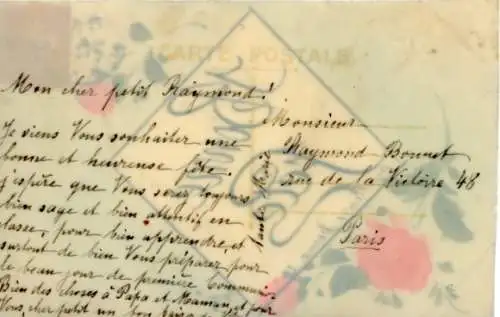 CARTE POSTALE
Mon cher petit Raymond!
Je viens Vous souhaiter une
bonne et heureuse fête.
j'espère que Vous serez toujours
bien sage et bien attentif en
classe, pour bien apprendre, et
surtout de bien Vous préparer pour
le beau jour de première Communi-
Bien des choses à Papa et Maman, et pour
Vous, cher petit un bon
Monsieur
Raymond Bonnet
rue de la Victoire 48
Paris